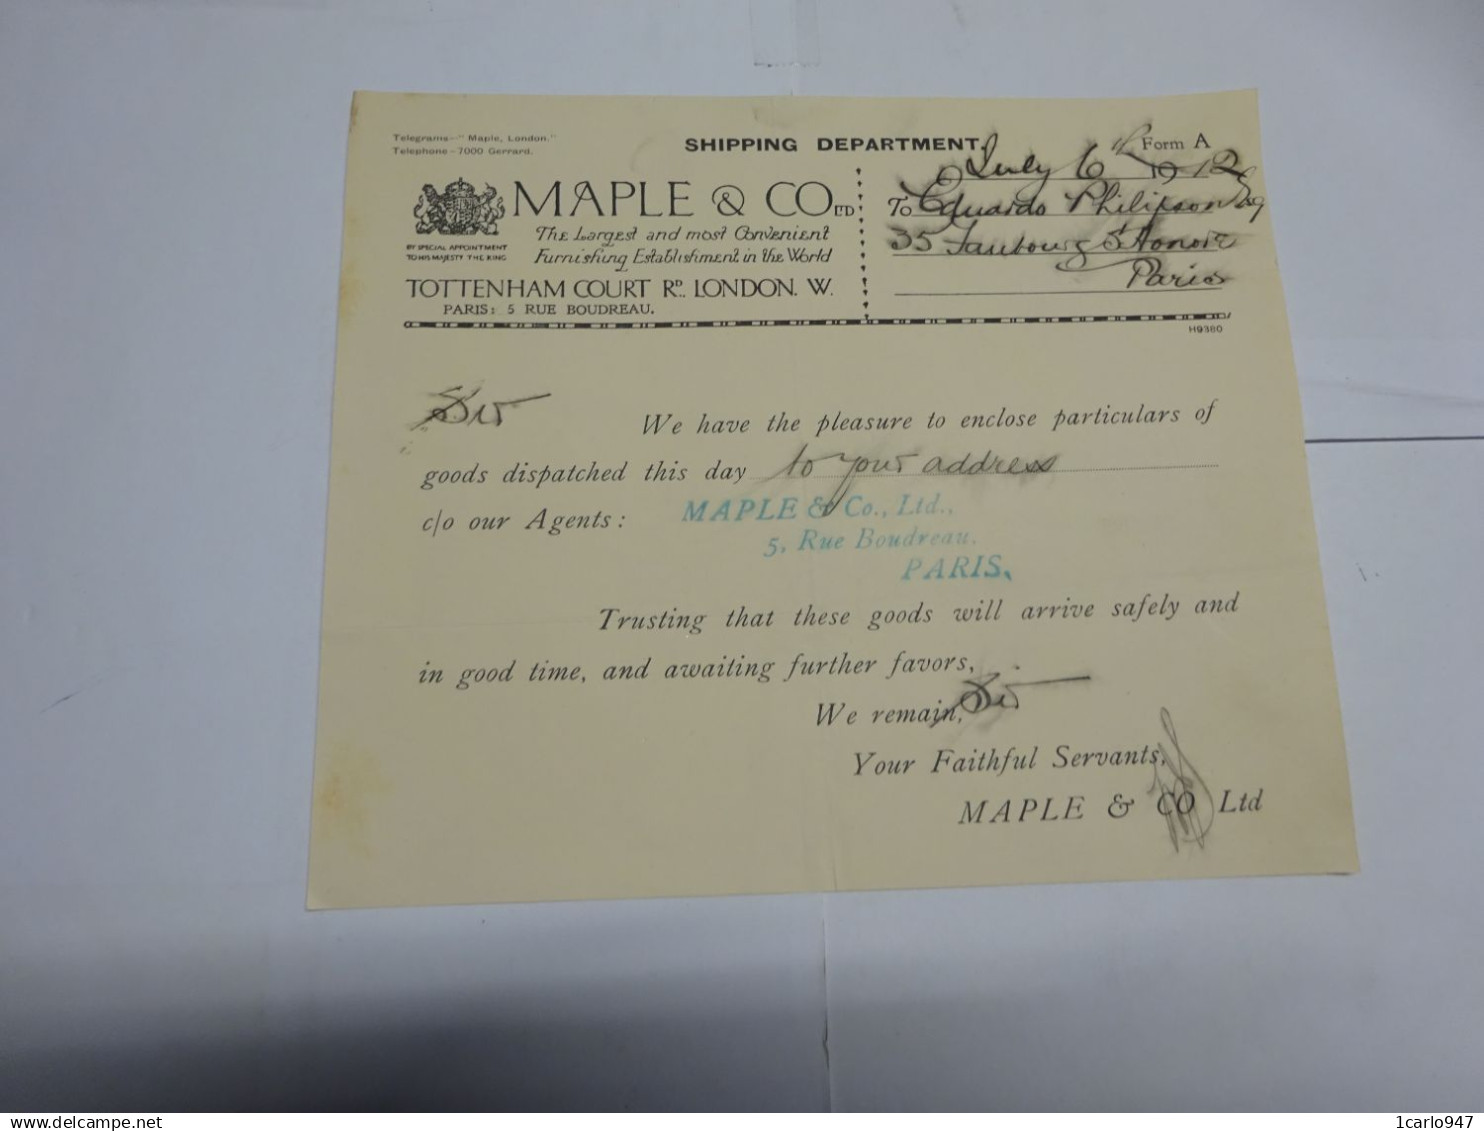 Telegrams—"Maple, London."
Telephone—7000 Gerrard.
SHIPPING DEPARTMENT.
Form A
July 6th 1912
MAPLE & CO LTD
To Eduardo Philipson Esq
The Largest and most Convenient
Furnishing Establishment in the World
35 Faubourg St Honoré
BY SPECIAL APPOINTMENT
TO HIS MAJESTY THE KING
Paris
TOTTENHAM COURT RD. LONDON. W.
PARIS: 5 RUE BOUDREAU.
H9380
Sir
We have the pleasure to enclose particulars of
goods dispatched this day to your address
c/o our Agents: MAPLE & Co., Ltd.,
5, Rue Boudreau.
PARIS.
Trusting that these goods will arrive safely and
in good time, and awaiting further favors,
We remain, Sir
Your Faithful Servants,
MAPLE & CO Ltd
1carlo947